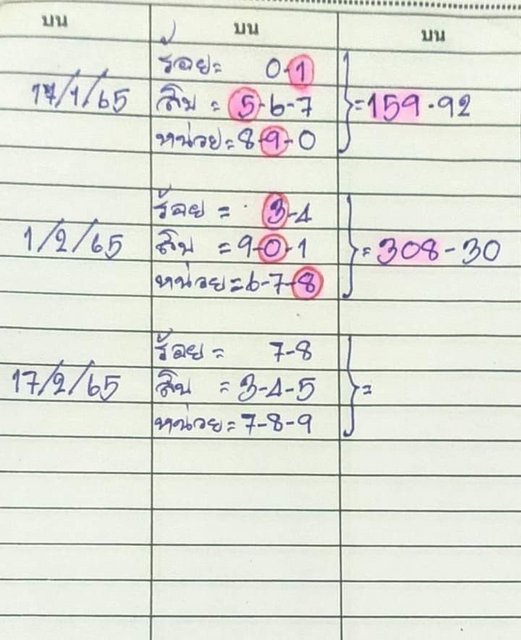 บน บน บน
ร้อย= 0-1
17/1/65 สิบ = 5-6-7 =159-92
หน่วย=8-9-0
ร้อย = 3-4
1/2/65 สิบ =9-0-1 =308-30
หน่วย=6-7-8
ร้อย = 7-8
17/2/65 สิบ =3-4-5 =
หน่วย=7-8-9